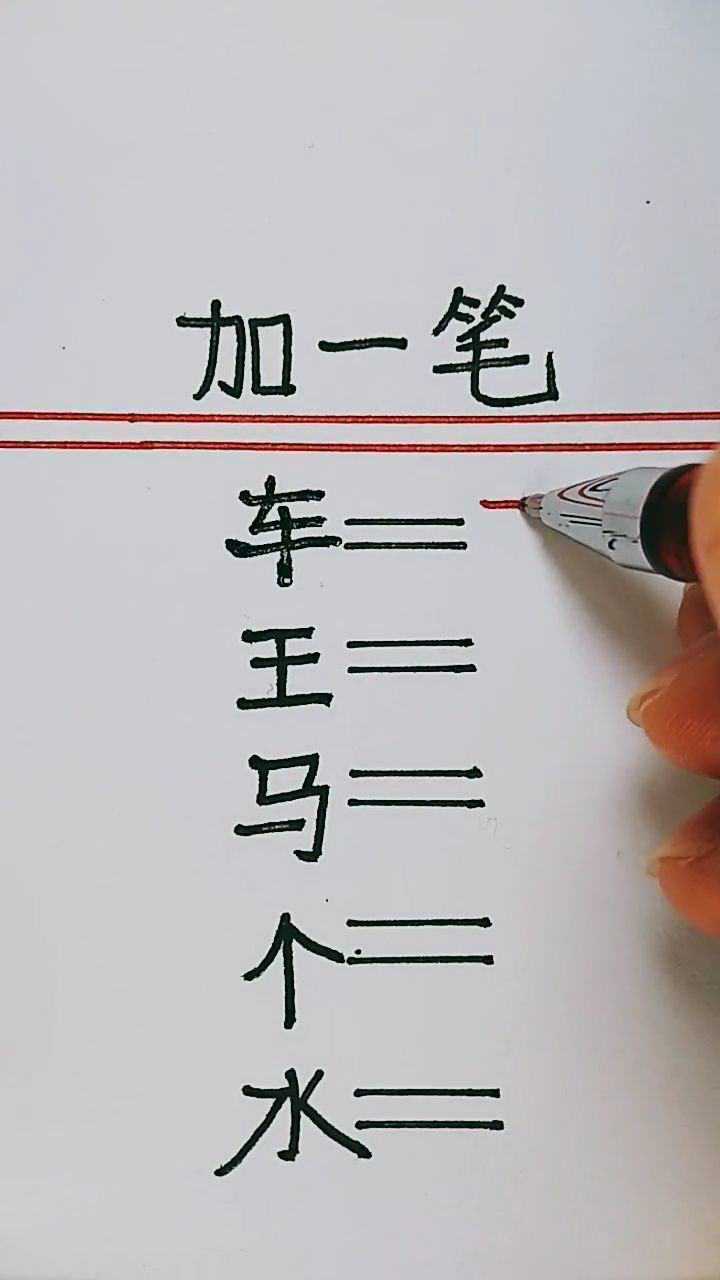 加一笔
车=
王=
马=
个=
水=